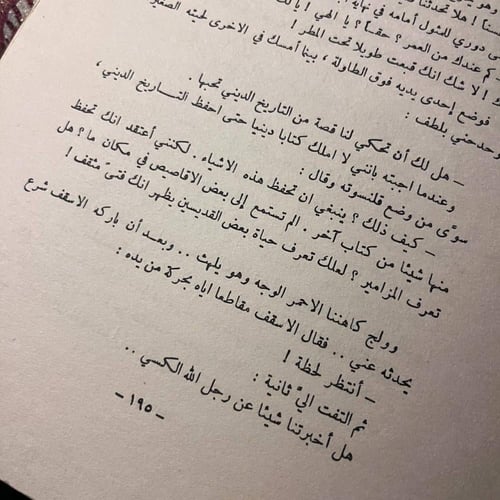 وهو يس
سناً ! هلا تحدثنا
ـى دوري للمثول أمامه في نهاية
كم عندك من العمر ؟ حقـاً ؟ يا الهي ! يا لك
! لا شك انك قبعت طويلا تحت المطر !
فوضع إحدى يديه فوق الطاولة ، بينما أمسك في الاخرى لحيته الصغير
وحدجني بلطف :
ـ هل لك أن تحكي لنا قصة من التاريخ الديني تحبها .
وعندما اجبته بانني لا املك كتابا دينيا حتى احفظ التـاريخ الديني ،
سوّى من وضع قلنسوته وقال :
ـ كيف ذلك ؟ ينبغي ان تحفظ هذه الاشياء . لكنني أعتقد انك تحفظ
منها شيئا من كتاب آخر . الم تستمع إلى بعض الاقاصيص في مكان ما ؟ هل
تعرف المزامير ؟ لعلك تعرف حياة بعض القديسين يظهر انك فتىً مثقف !
وولج كاهننا الاحمر الوجه وهو يلهث .. وبعـد أن باركه الاسقف شرع
يحدثه عني .. فقال الاسقف مقاطعا اياه بحركة من يده :
ـ أنتظر لحظة !
ثم التفت اليّ ثانية :
هل أخبرتنا شيئا عن رجل الله الكسي ..
ـ ١٩٥ ـ